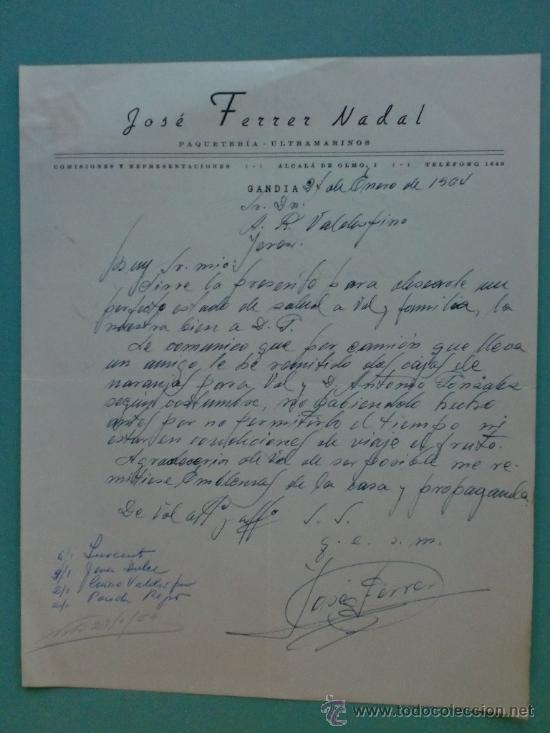 José Ferrer Nadal
PAQUETERÍA - ULTRAMARINOS
COMISIONES Y REPRESENTACIONES - ALCALÁ DE OLMO, 1 - TELÉFONO
GANDIA de Enero de
Sr. Dn.
A. R. Valdespino
Jerez.
Muy Sr. mio:
Sirve la presente para desearle un
perfecto estado de salud a Vd y familia, la
nuestra bien a D. G.
Le comunico que por camión que lleva
un amigo, le he remitido dos cajas de
naranjas para Vd y D. Antonio González
según costumbre, no habiendolo hecho
antes por no permitirlo el tiempo ni
estar en condiciones de viaje el fruto.
Agradeceria de Vd de ser posible me re-
mitiese emblemas de la casa y propaganda
De Vd affo S. S.
q. e. s. m.
José Ferrer
2/1 Inocente
Jerez Dulce
2/1 Valdespino
2/1
todocoleccion.net
www.todocoleccion.net